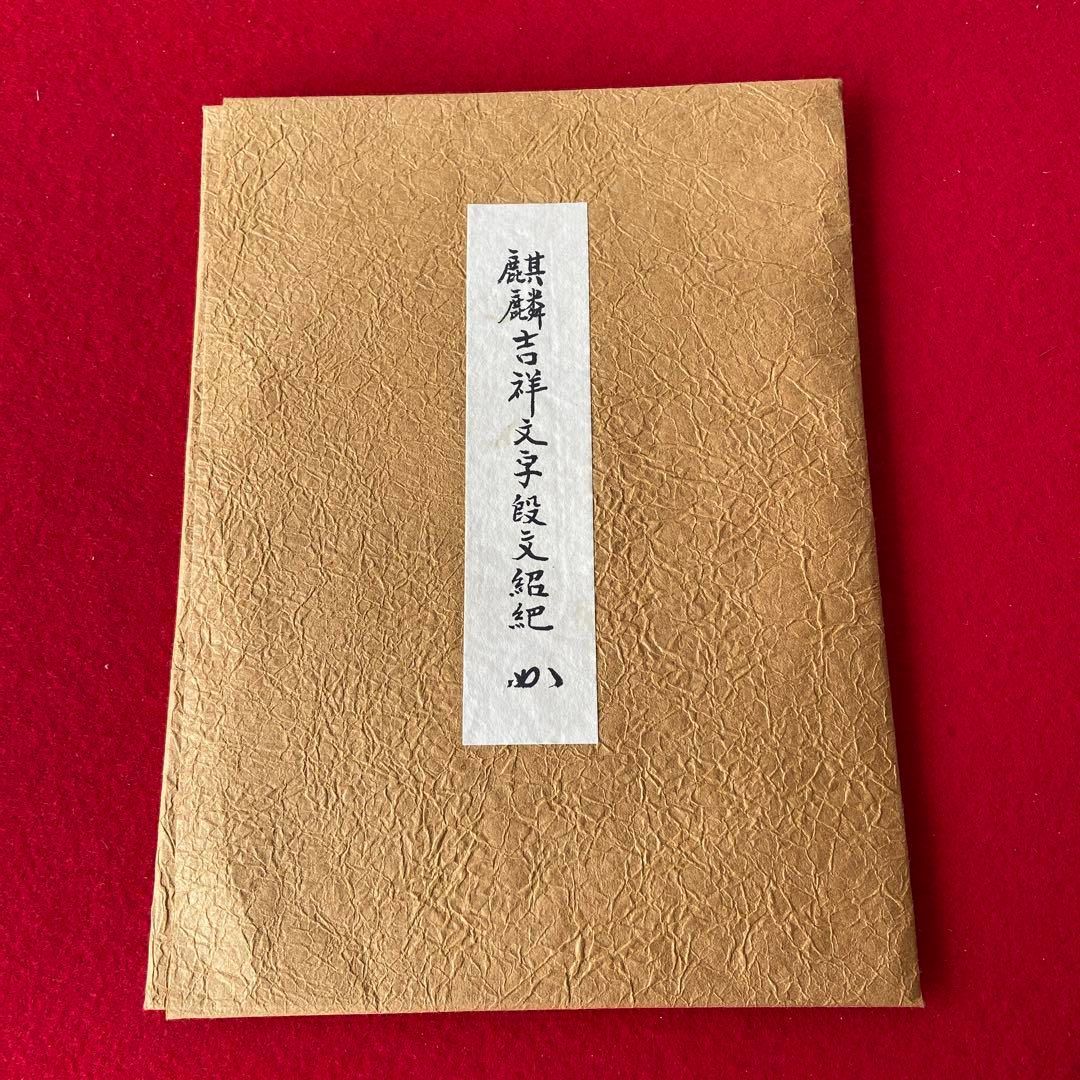 麒麟吉祥文字段文紹紦